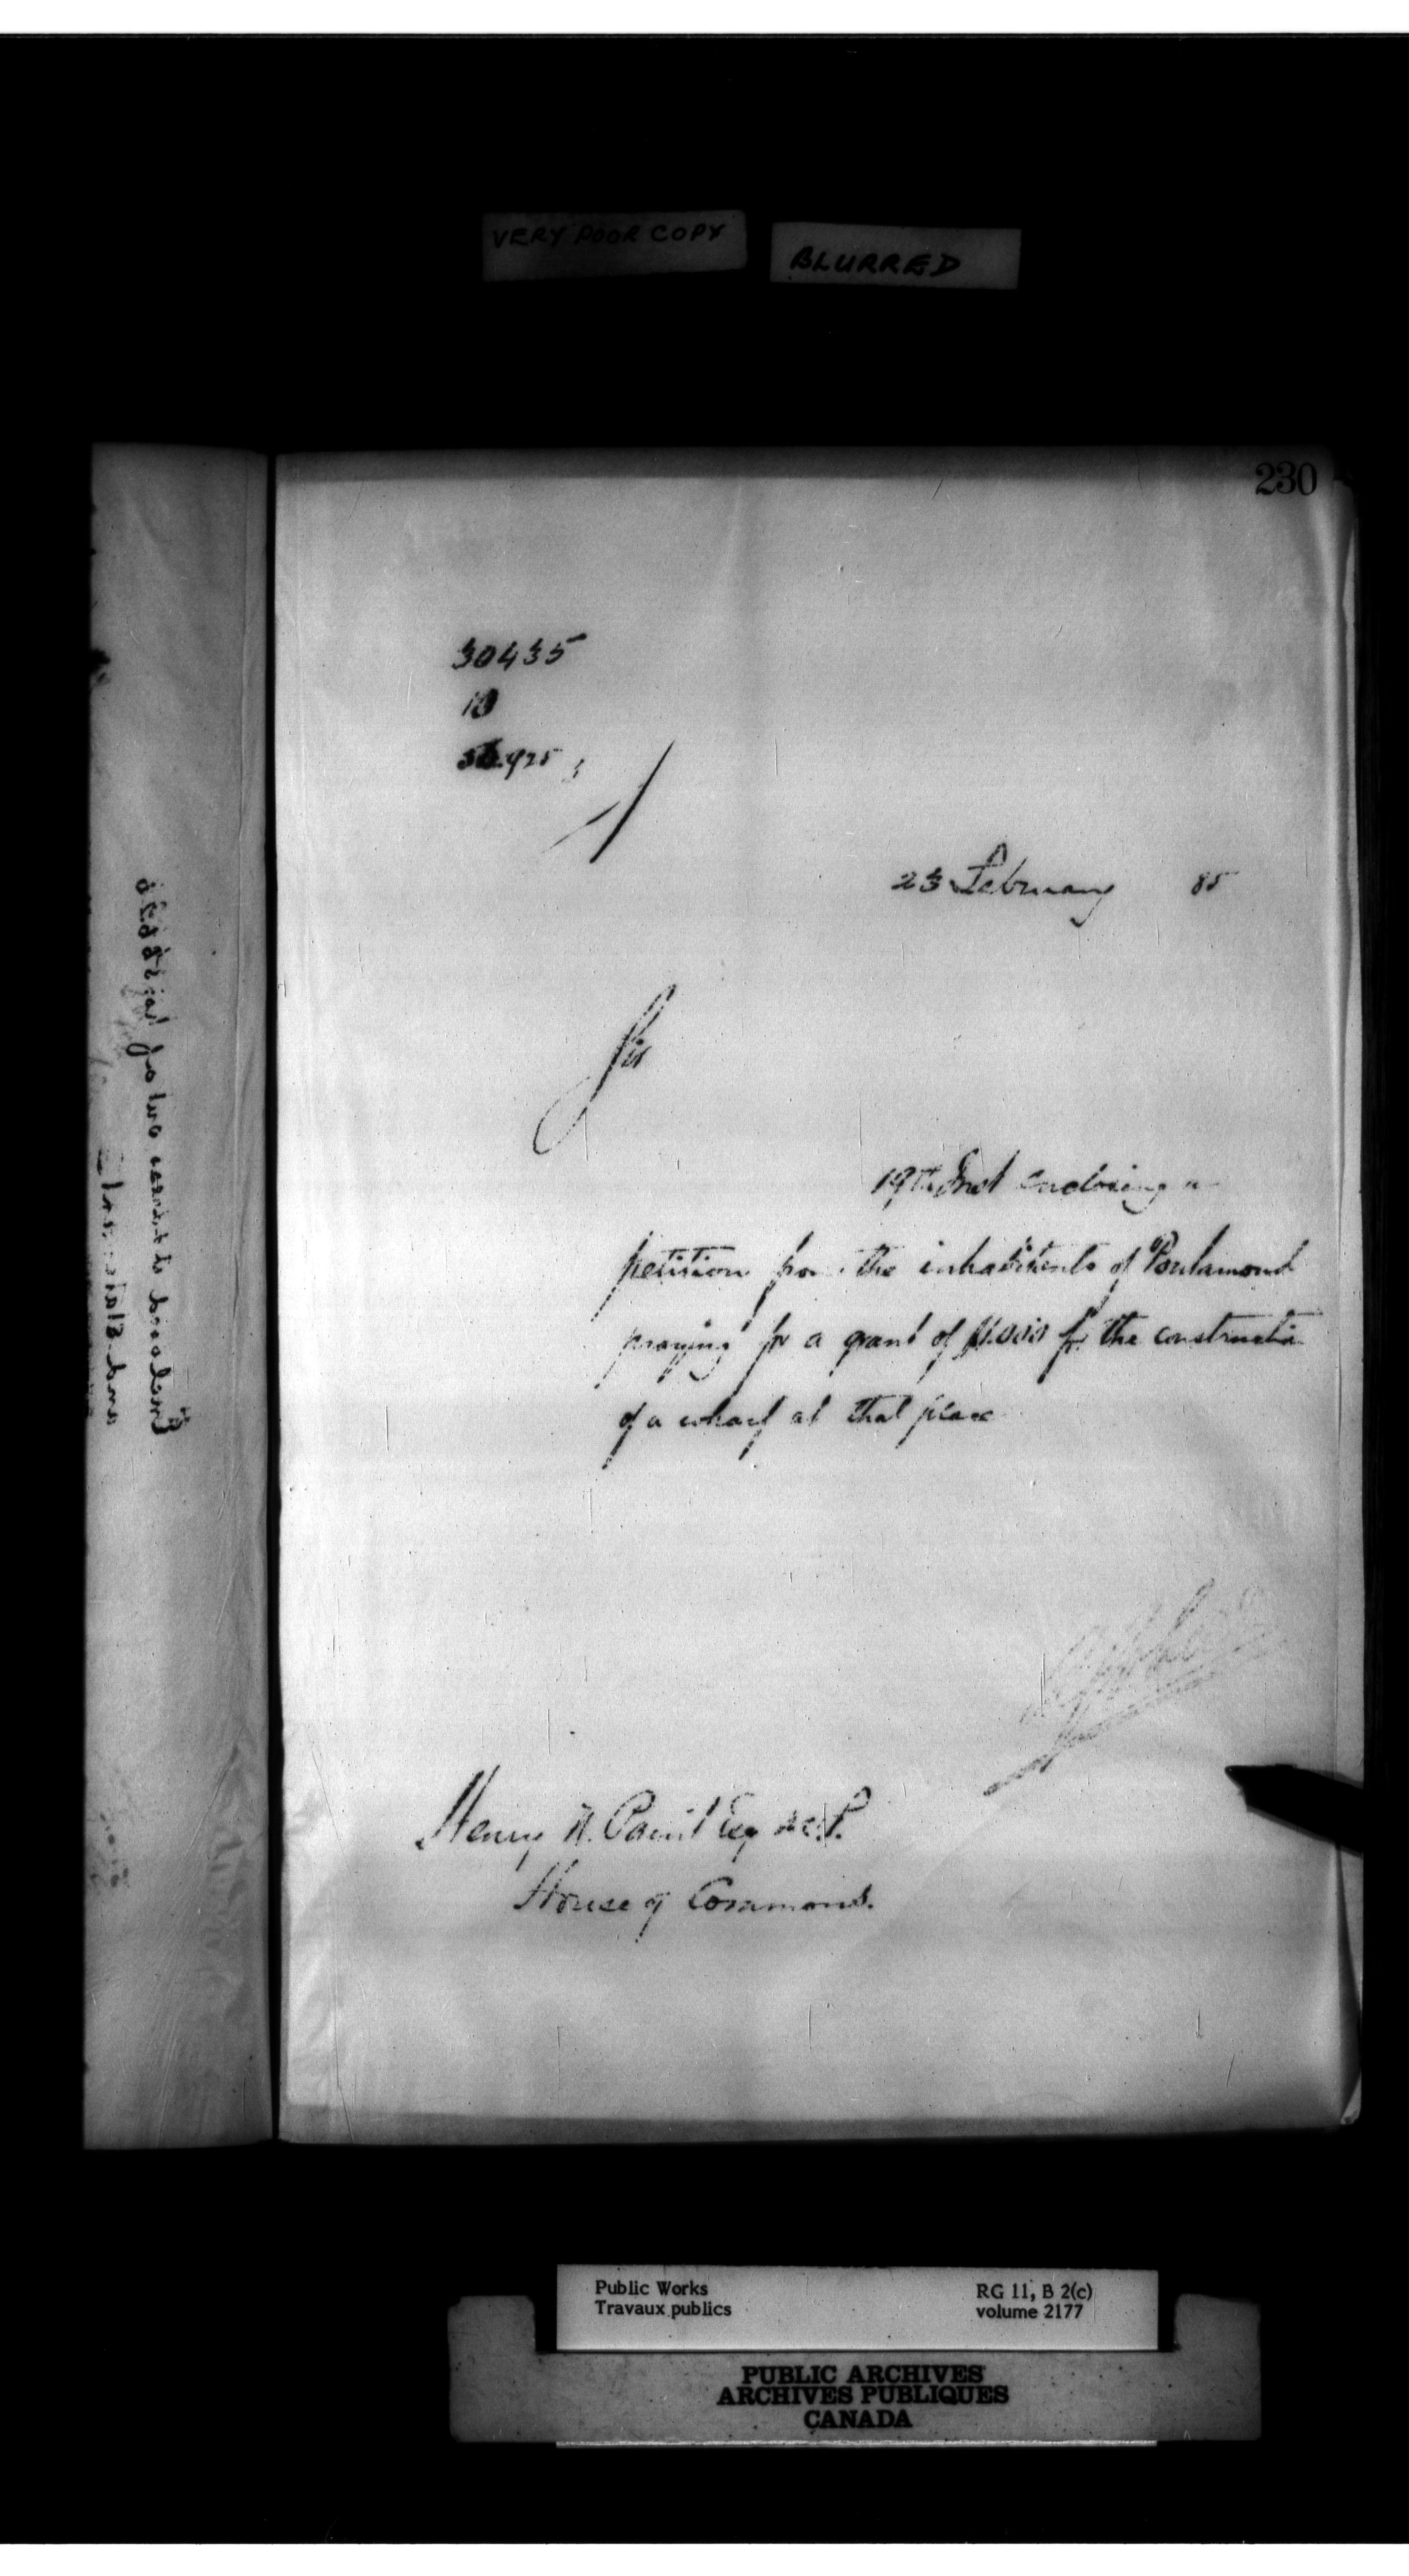 VERY POOR COPY
BLURRED
230
30435
10
23 February 85
Sir
19th Inst enclosing a
petition from the inhabitants of Poulamond
praying for a grant of $1.000 for the construction
of a wharf at that place
Henry N. Paint Esq M.P.
House of Commons.
Public Works
Travaux publics
RG 11, B 2(c)
volume 2177
PUBLIC ARCHIVES
ARCHIVES PUBLIQUES
CANADA